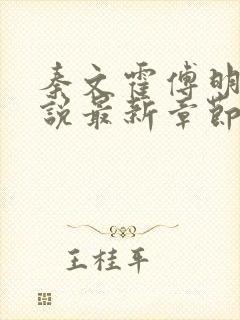 秦文霍傅明
说最新章節
王桂平